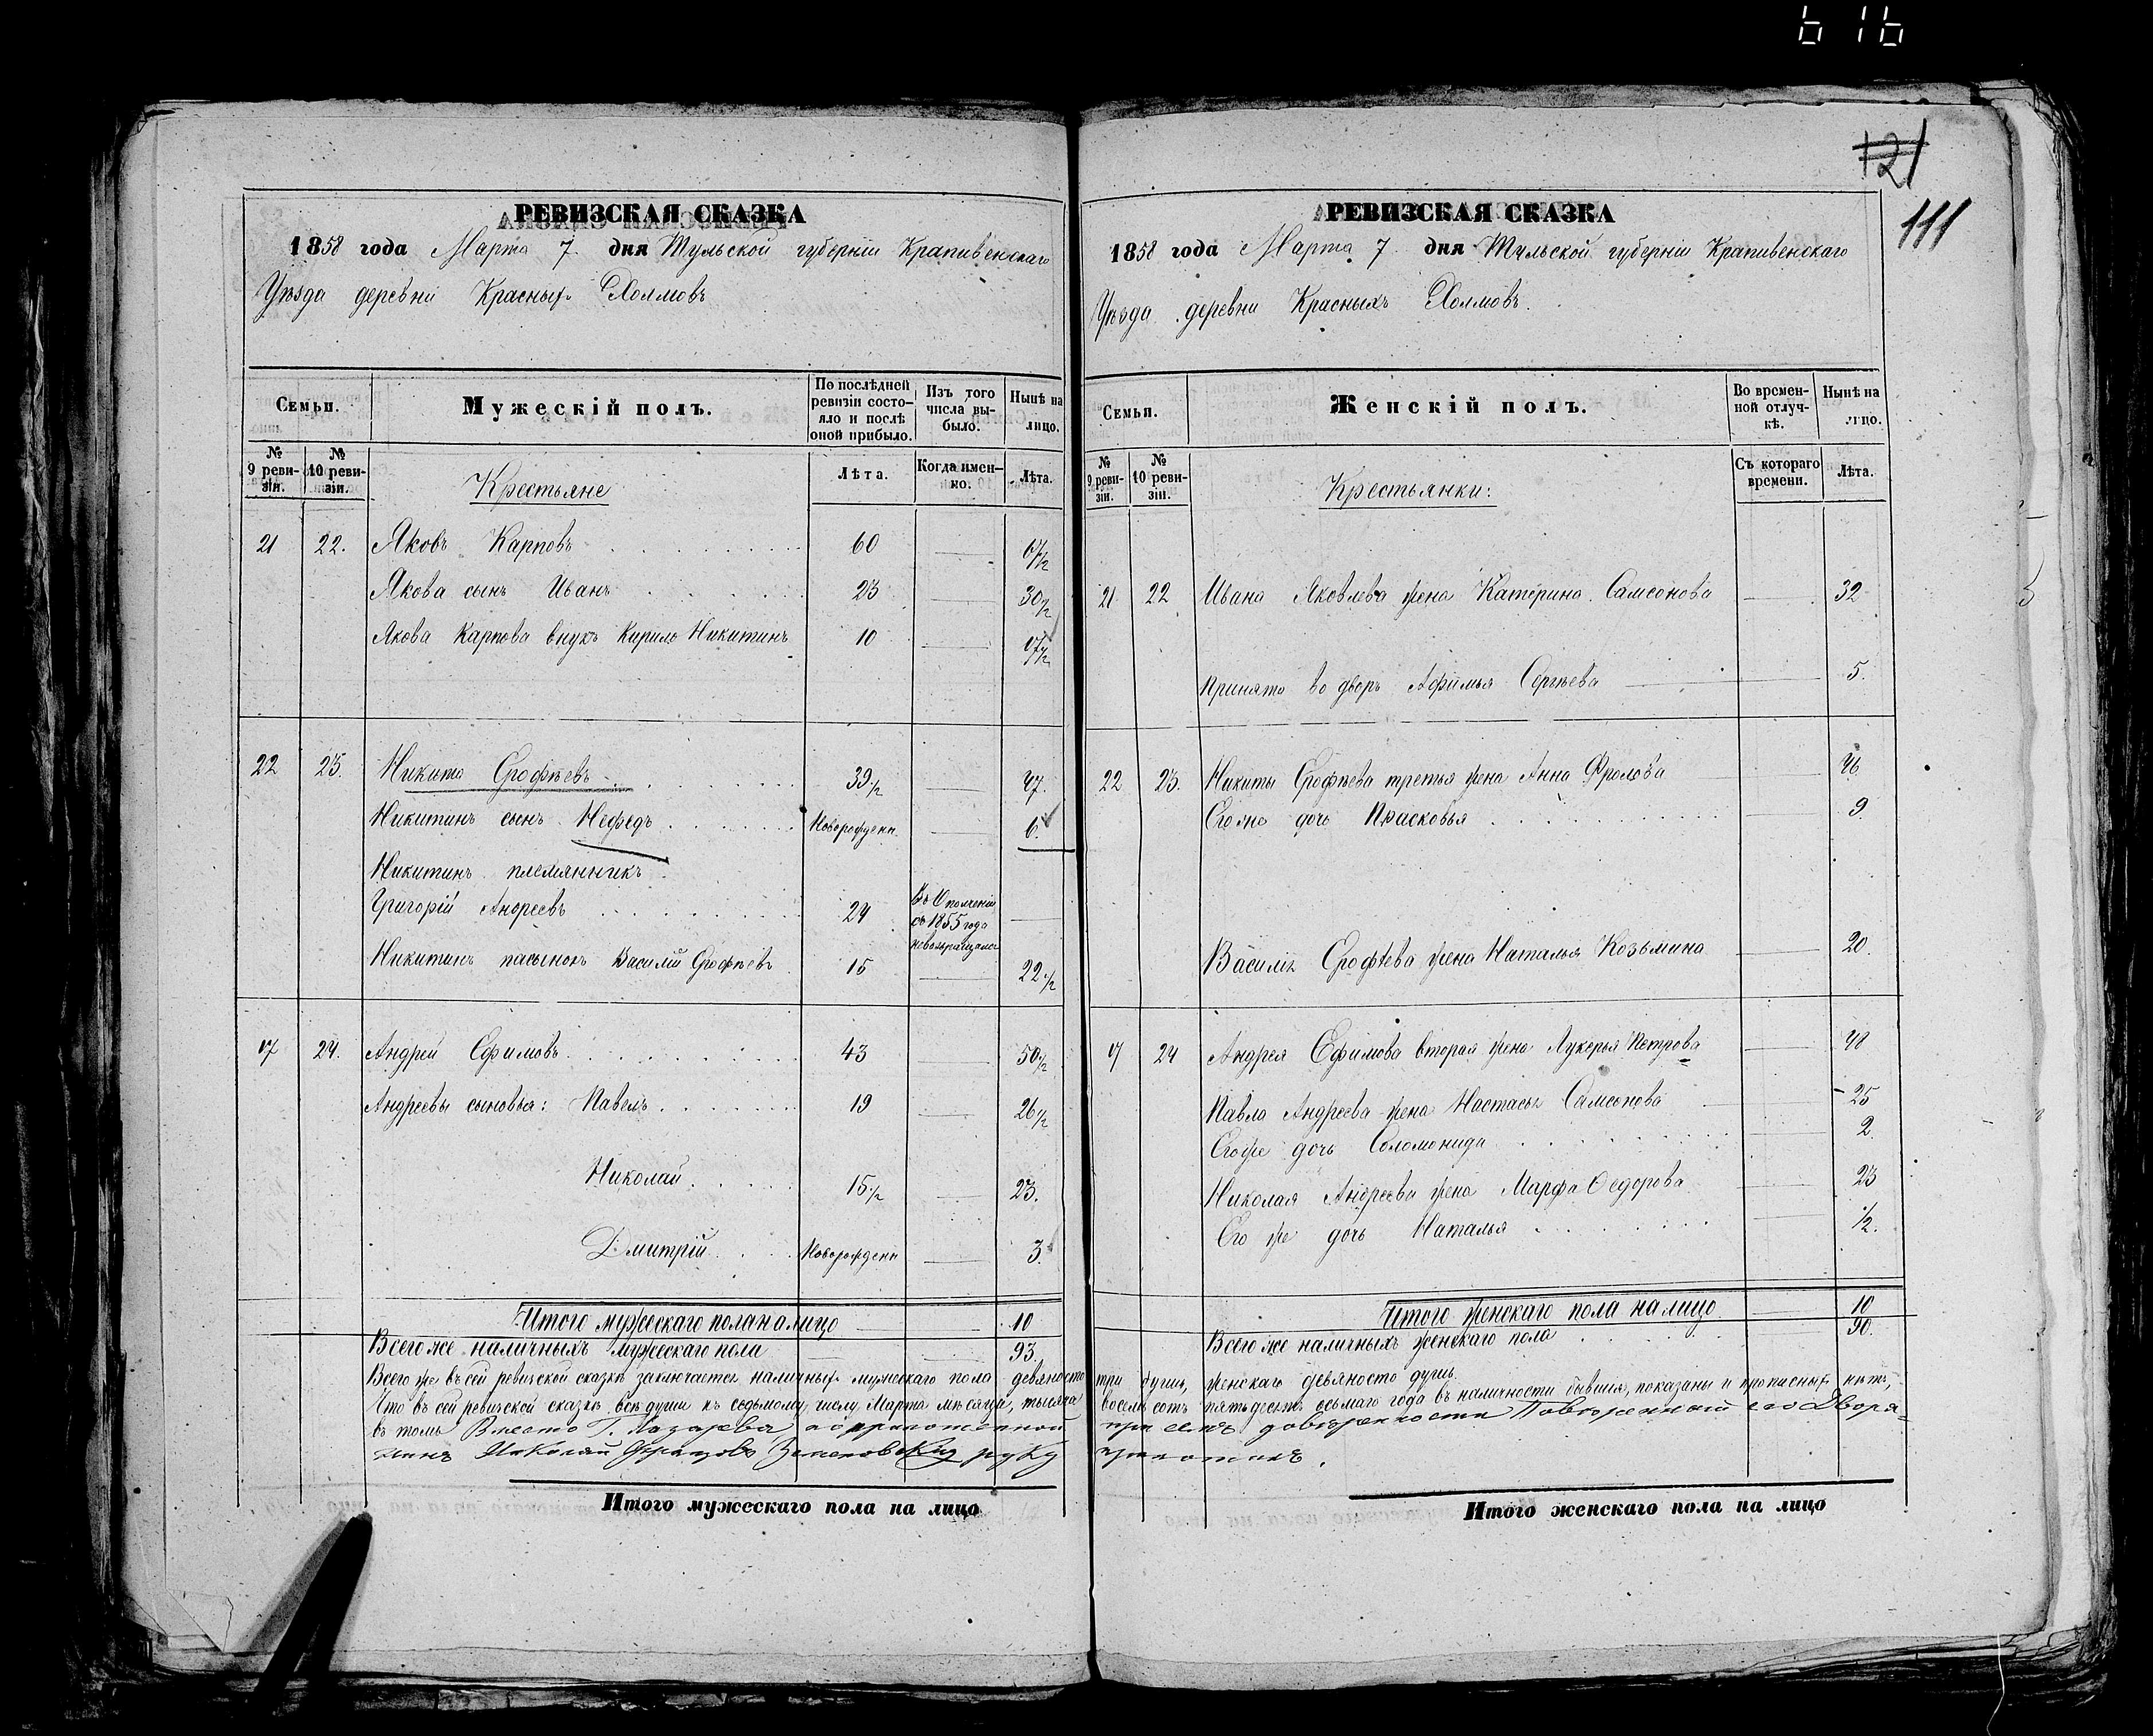 616
121
111
РЕВИЗСКАЯ СКАЗКА
1858 года Марта 7 дня Тульской губерніи Крапивенскаго
Уѣзда деревни Красныхъ Холмовъ
Семьи.
Мужескій полъ.
По послѣдней ревизіи состояло и послѣ оной прибыло.
Изъ того числа выбыло.
Нынѣ на лицо.
№ 9 ревизіи.
№ 10 ревизіи.
Крестьяне
Лѣта.
Когда именно.
Лѣта.
21 22. Яковъ Карповъ 60 — 67½
Якова сынъ Иванъ 23 — 30½
Якова Карпова внукъ Кирило Никитинъ 10 — 17½
22 23. Никита Ерофѣевъ 39½ — 47.
Никитинъ сынъ Нефедъ Новорожденн. — 6.
Никитинъ племянникъ
Григорій Андреевъ 24 Въ Ополченіи съ 1855 года невозвращался —
Никитинъ пасынокъ Василій Ерофѣевъ 15 — 22½
17 24. Андрей Ефимовъ 43 — 50½
Андреевы сыновья: Павелъ 19 — 26½
Николай 15½ — 23.
Дмитрій Новорожденн — 3.
Итого мужескаго пола на лицо 10
Всего же наличныхъ мужескаго пола 93.
Всего же въ сей ревизской сказкѣ заключается наличныхъ мужескаго пола девяносто
Что въ сей ревизской сказкѣ всѣ души къ седьмому числу Марта мѣсяца, тысяча
въ томъ Вместо Г. Лазарева, по приложенной
нинъ Николай руку
Итого мужескаго пола на лицо
РЕВИЗСКАЯ СКАЗКА
1858 года Марта 7 дня Тульской губерніи Крапивенскаго
Уѣзда деревни Красныхъ Холмовъ.
Семьи.
Женскій полъ.
Во временной отлучкѣ.
Нынѣ на лицо.
№ 9 ревизіи.
№ 10 ревизіи.
Крестьянки:
Съ котораго времени.
Лѣта.
21 22 Ивана Яковлева жена Катерина Самсонова — 32
Принята во дворъ Афимья Сергѣева — 5.
22 23. Никиты Ерофѣева третья жена Анна Фролова — 46.
Его же дочь Прасковья — 9.
Василія Ерофѣева жена Наталья Козьмина — 20.
17 24 Андрея Ефимова вторая жена Лукерья Петрова — 48
Павла Андреева жена Настасья Самсонова — 25
Его же дочь Соломонида — 2.
Николая Андреева жена Марфа Ѳедорова — 23
Его же дочь Наталья — ½.
Итого женскаго пола на лицо 10
Всего же наличныхъ женскаго пола 90.
три души, женскаго девяносто душъ.
восемьсотъ пятьдесятъ осьмаго года въ наличности бывшія, показаны и прописныхъ нѣтъ,
при семъ довѣренности Повѣренный его Дворя-
приложилъ.
Итого женскаго пола на лицо